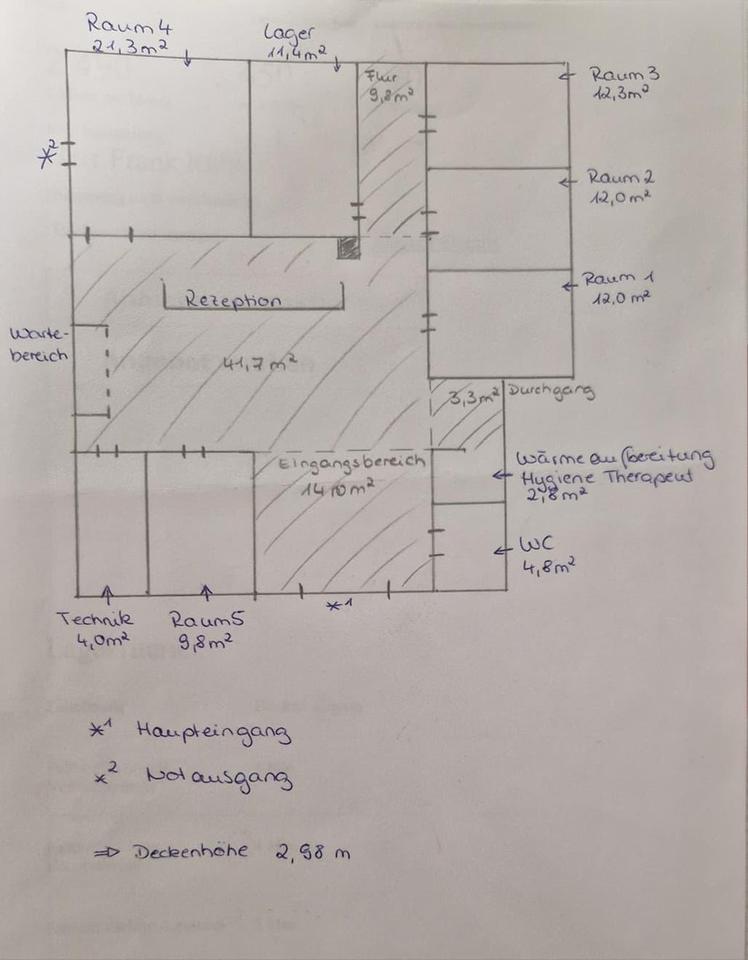 Raum 4
21,3m²
Lager
11,4m²
Flur
9,8m²
Raum 3
12,3m²
*²
Raum 2
12,0m²
Raum 1
12,0m²
Rezeption
Warte-
bereich
41,7m²
3,3m²
Durchgang
Eingangsbereich
14,0m²
Wärmeaufbereitung
Hygiene Therapeut
2,8m²
WC
4,8m²
*1
Technik
4,0m²
Raum5
9,8m²
*1 Haupteingang
*2 Notausgang
⇒ Deckenhöhe 2,98 m